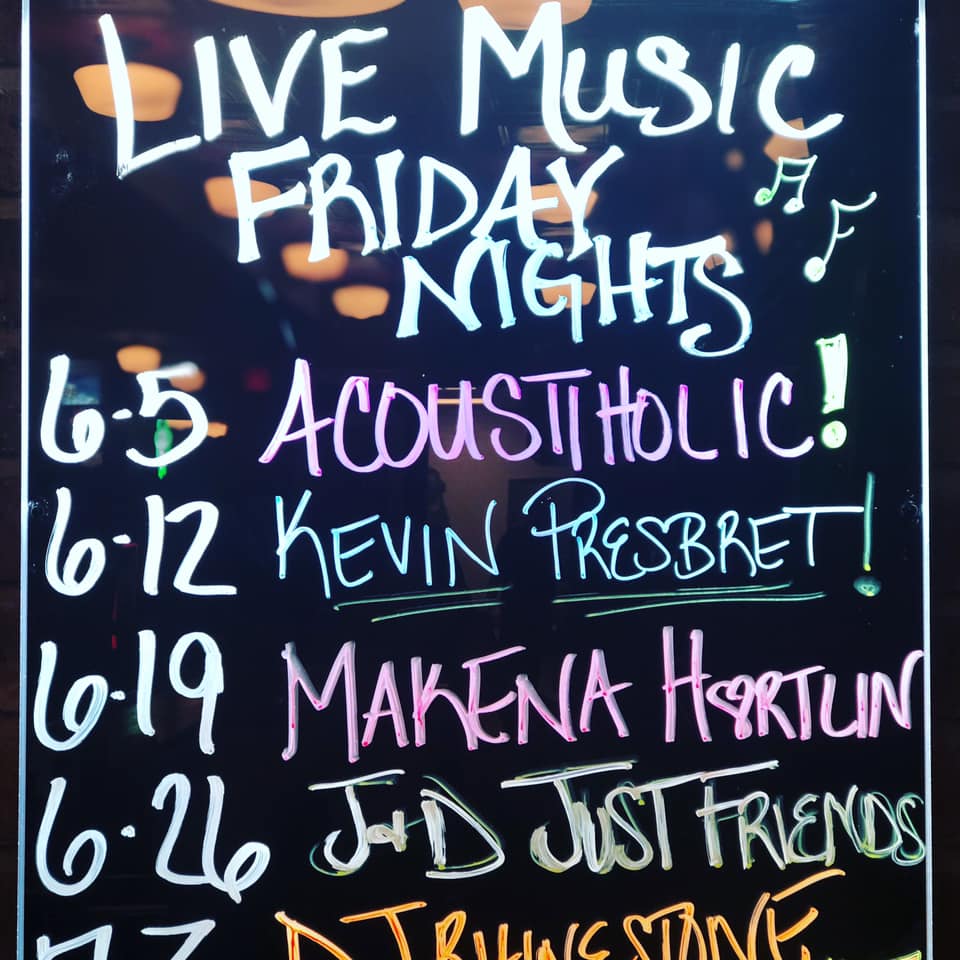 LIVE MUSIC
FRIDAY
NIGHTS
6-5 ACOUSTIHOLIC!
6-12 KEVIN PRESBRET!
6-19 MAKENA HaRTLIN
6-26 J&D JUST FRIENDS
7-3 DJ RHINESTONE